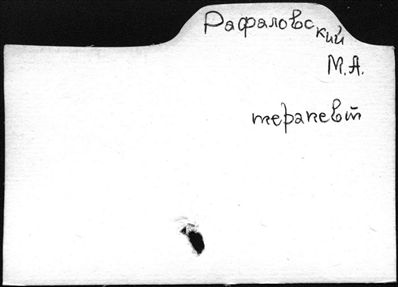 Рафаловский
М.А.
терапевт